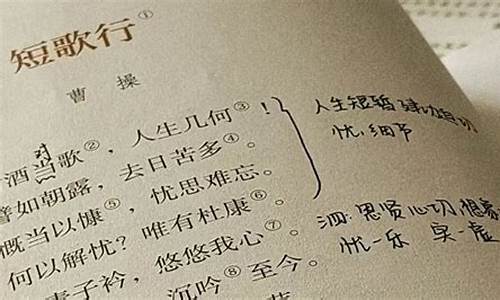 短歌行①
曹 操
对
酒当歌②，人生几何③！
譬如朝露，去日苦多④。
慨当以慷⑤，忧思难忘。
何以解忧？唯有杜康⑥。
青子衿，悠悠我心⑦。
沉吟⑧至今。
人生短暂 建功
忧，细节
思贤心切 想象
忧－乐 实－虚